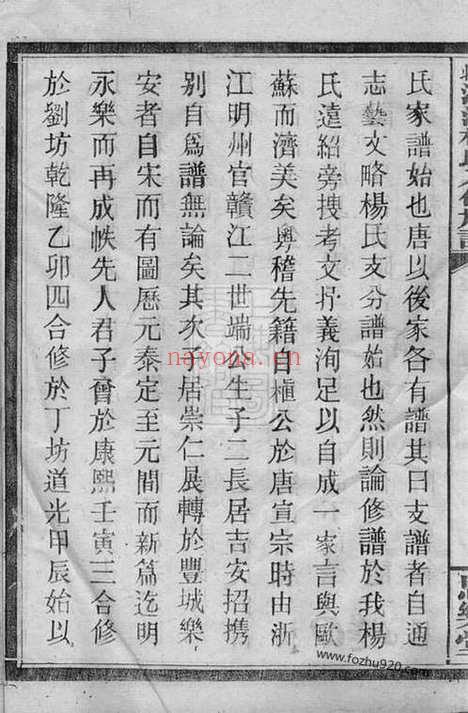 氏家譜始也唐以後家各有譜其曰支譜者自通
志藝文略楊氏支分譜始也然則論修譜於我楊
氏遠紹旁搜考文抒義洵足以自成一家言與歐
蘇而濟美矣粵稽先籍自種公於唐宣宗時由浙
江明州官贛江二世端公生子二長居吉安招攜
別自爲譜無論矣其次子居崇仁展轉於豐城樂
安者自宋而有圖歷元泰定至元間而新篇迄明
永樂而再成帙先人君子曾於康熙壬寅三合修
於劉坊乾隆乙卯四合修於丁坊道光甲辰始以
nayona.cn
www.fozhu920.com